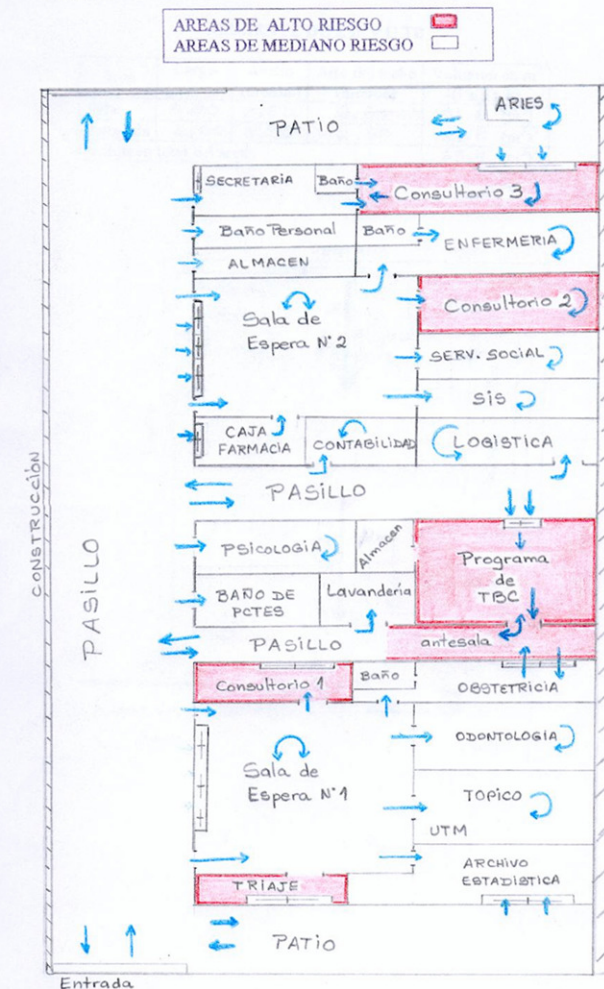 AREAS DE ALTO RIESGO
AREAS DE MEDIANO RIESGO
ARIES
PATIO
SECRETARIA
Baño
Consultorio 3
Baño Personal
Baño
ENFERMERIA
ALMACEN
Consultorio 2
Sala de
Espera N°2
SERV. SOCIAL
SIS
CAJA
FARMACIA
CONTABILIDAD
LOGISTICA
PASILLO
CONSTRUCCIÓN
PASILLO
PSICOLOGIA
Almacen
Programa
de
TBC
BAÑO DE
PCTES
Lavandería
PASILLO
antesala
Consultorio 1
Baño
OBSTETRICIA
ODONTOLOGIA
Sala de
Espera N°1
TOPICO
UTM
ARCHIVO
ESTADISTICA
TRIAJE
PATIO
Entrada